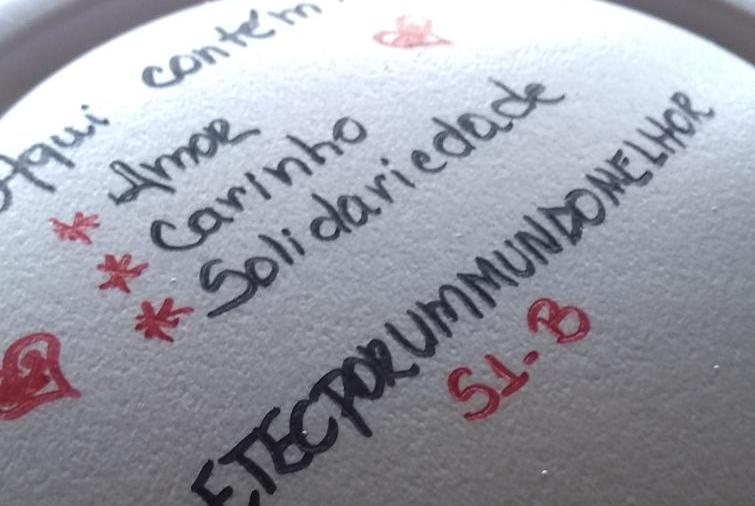 Aqui contém:
* Amor
* Carinho
* Solidariedade
ETECPORUMMUNDOMELHOR
S1-B